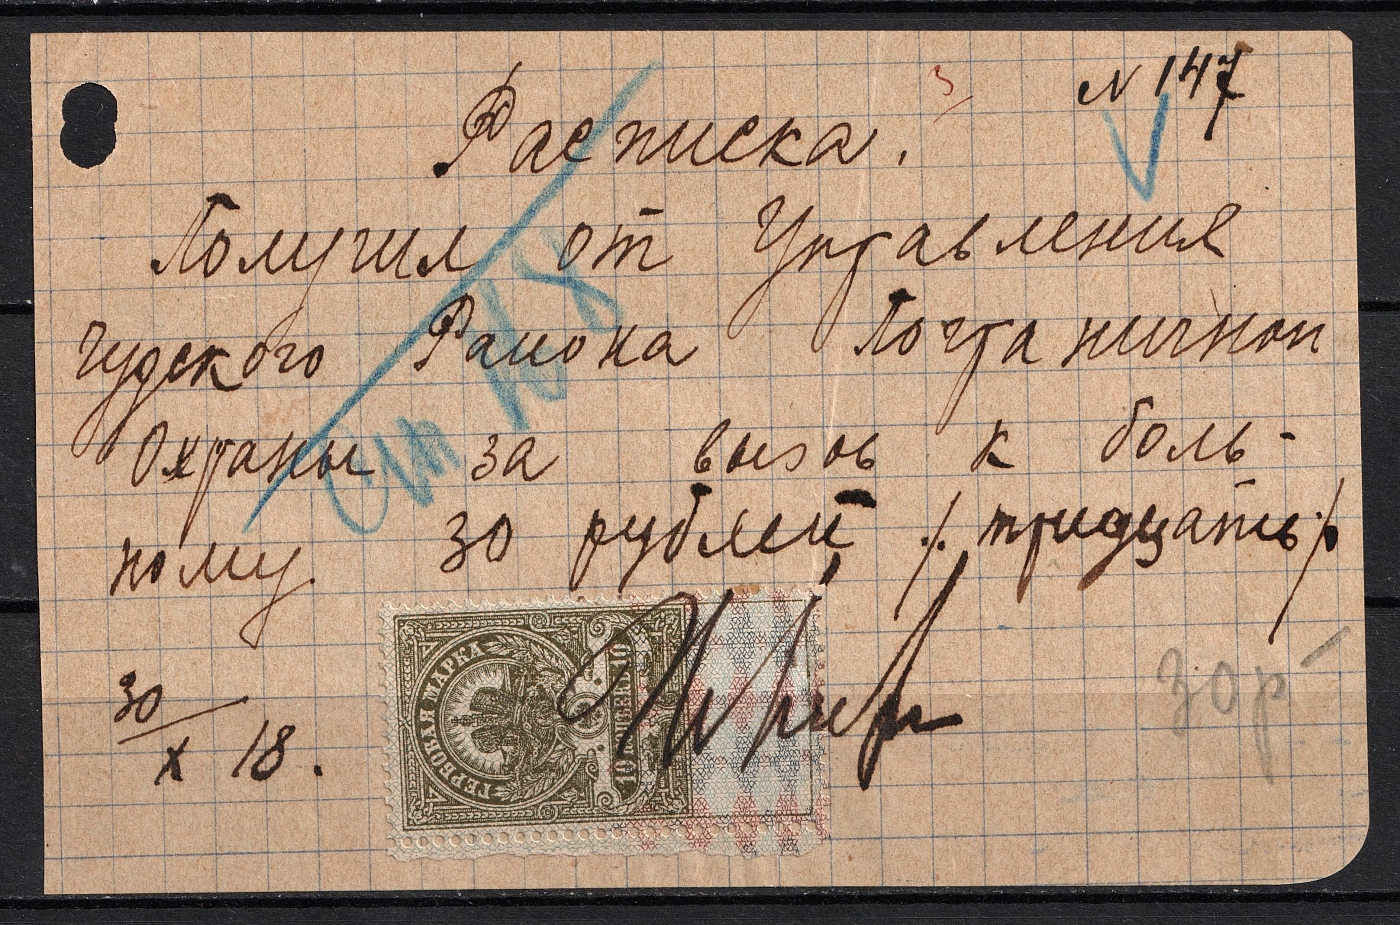 N 147
Расписка.
Получил от Управления
Чудского Района Пограничной
Охраны за вызов к боль-
ному. 30 рублей /. тридцать./
30/X 18.
ГЕРБОВАЯ МАРКА
10 КОПѢЕКЪ 10
30 р